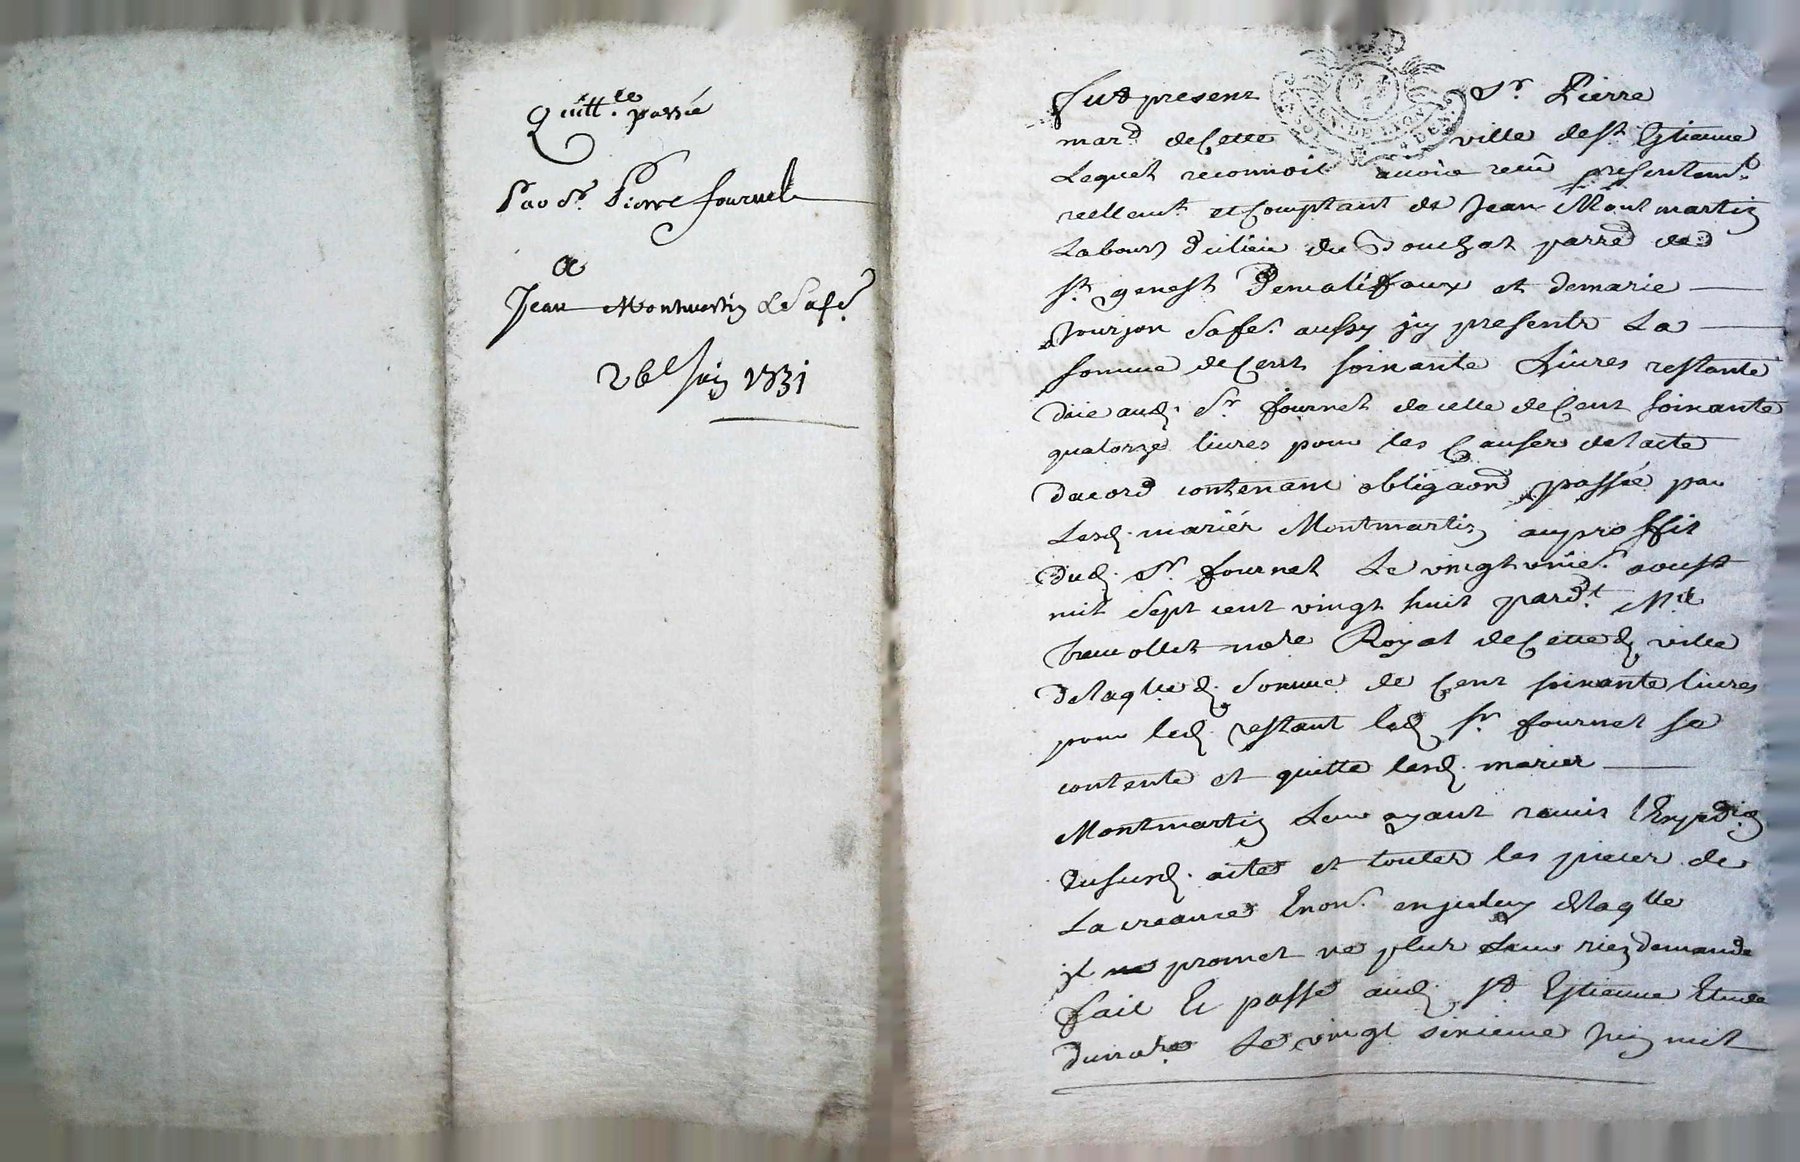 Quitt.ce passée
Par Sr. Pierre fournel
a
Jean Montmartin & Sa fe.
26e Juin 1731
GEN. DE LYON
4 DEN.
fut present Sr Pierre
mard de Cette ville de st Estienne
Lequel reconnoit avoir reçû presentemt.
reellemt. et Comptant de Jean Montmartin
Labourr du lieu du parred de
st. genest de malifaux et de marie
Sa fe. aussy jcy presente La
somme de Cent soixante Livres restante
düe aud. Sr fournel de celle de Cent soixante
quatorze livres pour les Causes de lacte
dacord contenant obligaond passée par
Lesd. mariés Montmartin au proffit
dud. Sr. fournel Le vingt unie. aoust
mil Sept cent vingt huit pardt. Me
nore Royal de Cetted. ville
de laqlle d. Somme de Cent soixante livres
pour led. restant led. Sr. fournel se
contente et quitte lesd. mariés
Montmartin Leur ayant remis l'Expedion
du susd. acte et toutes les pieces de
La creance de laqlle
jl promet ne plus Leur rien demander
fait Et passé aud. st Estienne Etude
du nore. Le vingt sixieme Juin mil